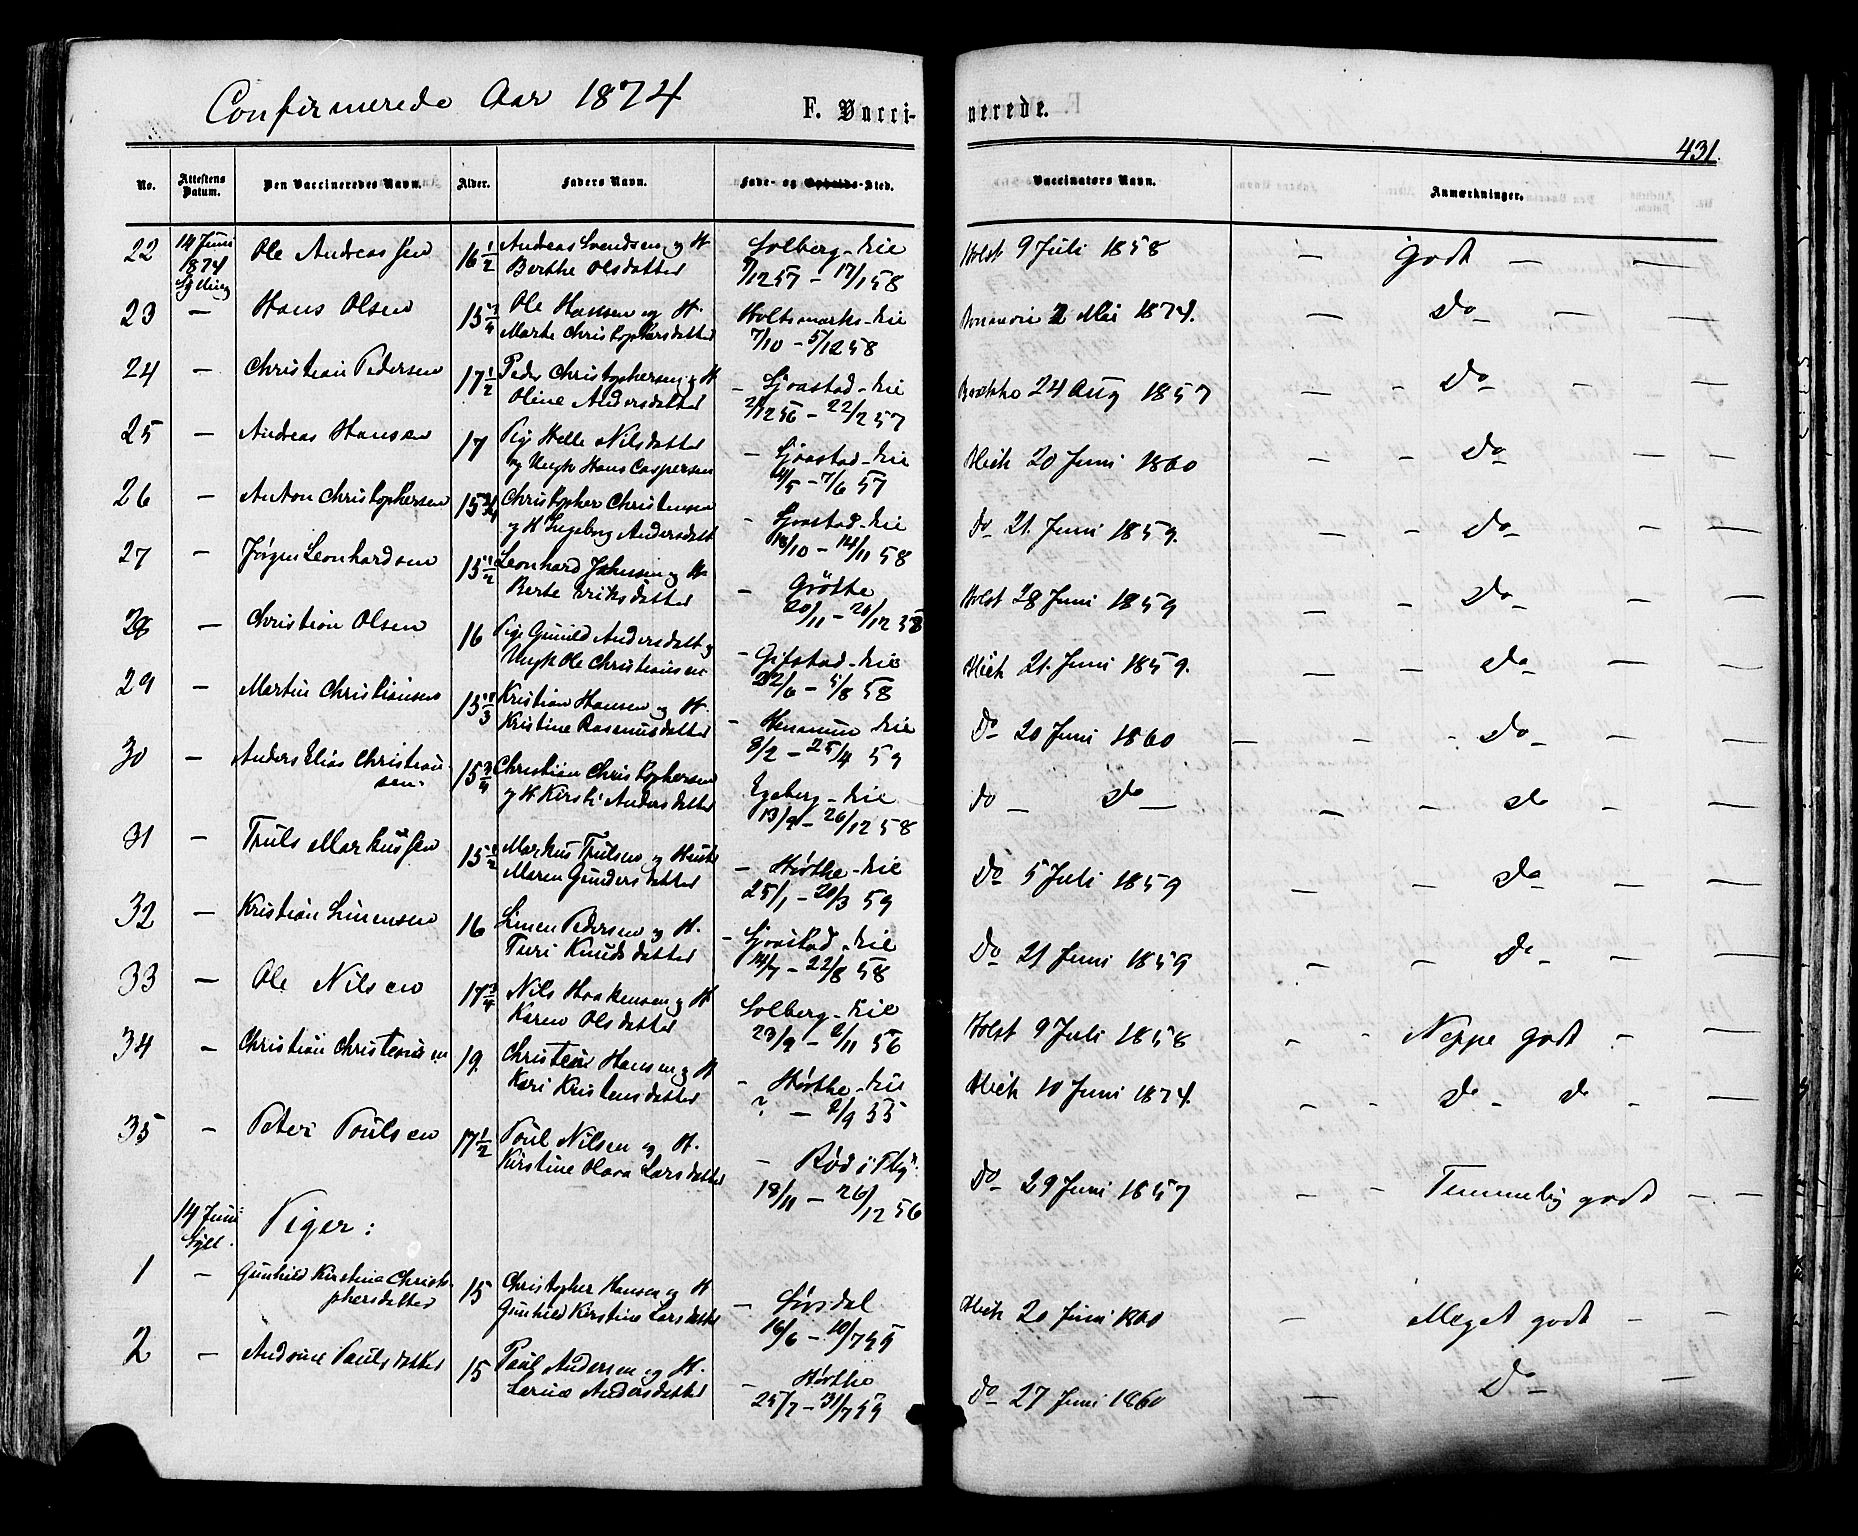 Confirmerede Aar 1874
F. Vacci-
nerede.
431.
No. Attestens Datum. Den Vaccineredes Navn. Alder. Faders Navn. Føde- og Opholds-Sted. Vaccinators Navn. Anmærkninger.
22 14 Juni 1874 Sylling Ole Andreassen 16 1/2 Andreas Svendsen og H Solberg-Eie Holst 9 Juli 1858 — Godt — —
Berthe Olsdatter 9/12 57 - 17/1 58
23 — Hans Olsen 15 3/4 Ole Hansen og H. Holtsmarks-Eie 2 Mai 1874. — Do — —
Marthe Christophersdatter 7/10 - 5/12 58
24 — Christian Pedersen 17 1/2 Peder Christophersen og H — Sjaastad-Eie 24 Aug 1857 — - Do - —
Oline Andersdatter 2/12 56 - 22/2 57
25 — Andreas Hansen 17 Pige Helle Nilsdatter — Sjaastad-Eie 20 Juni 1860 — - Do — —
og Ungk Hans Caspersen /5 - 7/6 57
26 — Anton Christophersen 15 3/4 Christopher Christensen — Sjaastad-Eie Do 21 Juni 1859. — - Do — —
og H Ingeborg Andersdatt 18/10 - 14/11 58
27 — Jørgen Leonhardsen 15 1/2 Leonhard Johnsen og H — Grøtte Holst 28 Juni 1859 — — Do — —
Berte Eriksdatter 20/11 - 26/12 58
28 — Christian Olsen 16 Pige Gunild Andersdatt og — Gifstad-Eie 21. Juni 1859. — - Do — —
Ungk Ole Christiansen 22/6 - 5/8 58
29 — Martin Christiansen 15 1/3 Kristian Hansen og H. — Hennum Eie Do 20 Juni 1860 — — Do — —
Kristine Rasmusdatter 8/2 - 25/4 59
30 — Anders Elias Christian- 15 3/4 Christian Christophersen Egeberg-Eie Do — Do — — — Do — —
sen. og H Kirsti Andersdatter 13/9 - 26/12 58
31 — Truls Markussen 15 1/2 Markus Trulsen og Hustr — Hørthe-Eie Do 5 Juli 1859 — — Do — —
Maren Gundersdatter 25/1 - 20/3 59
32 — Kristian Simensen 16 Simen Pedersen og H. — Sjaastad-Eie Do 21 Juni 1859 — — Do — —
Turi Knudsdatter 14/7 - 22/8 58
33 — Ole Nilsen 17 3/4 Nils Haakensen og H Solberg-Eie Holst 9 Juli 1858 - - Neppe godt - —
Karen Olsdatter 23/9 - 2/11 56
34 — Christian Christensen 19. Christen Hansen og H — Hørthe-Eie 10 Juni 1874. — — Do - Do - —
Kari Kristensdatter ? — 2/9 55
35 — Peter Poulsen 17 1/2 Poul Nilsen og H. — Rød i Do 29 Juni 1857 — - Temmelig godt - —
Kirstine Larsdatter 18/11 - 26/12 56
14 Juni Syll. Piger:
1 — Gunhild Kirstine Christo- 15 Christopher Hansen og H — Sørsdal 20 Juni 1860 — — Meget godt - —
phersdatter Gunhild Kirstine Larsdatter 16/6 - 10/7 59
2 — Andrine Paulsdatter 15 Paul Andersen og H. — Hørthe Do 27 Juni 1860 — Do — —
Andersdatter 25/7 - 31/7 59